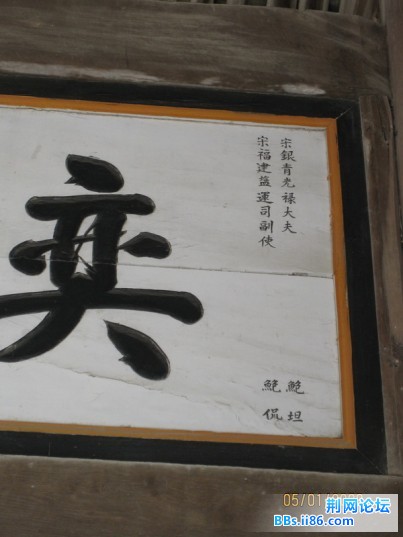 宋銀青光禄大夫
宋福建盐運司副使
鮑坦
鮑侃
奕
05/01
荆网论坛
BBs.ii86.com